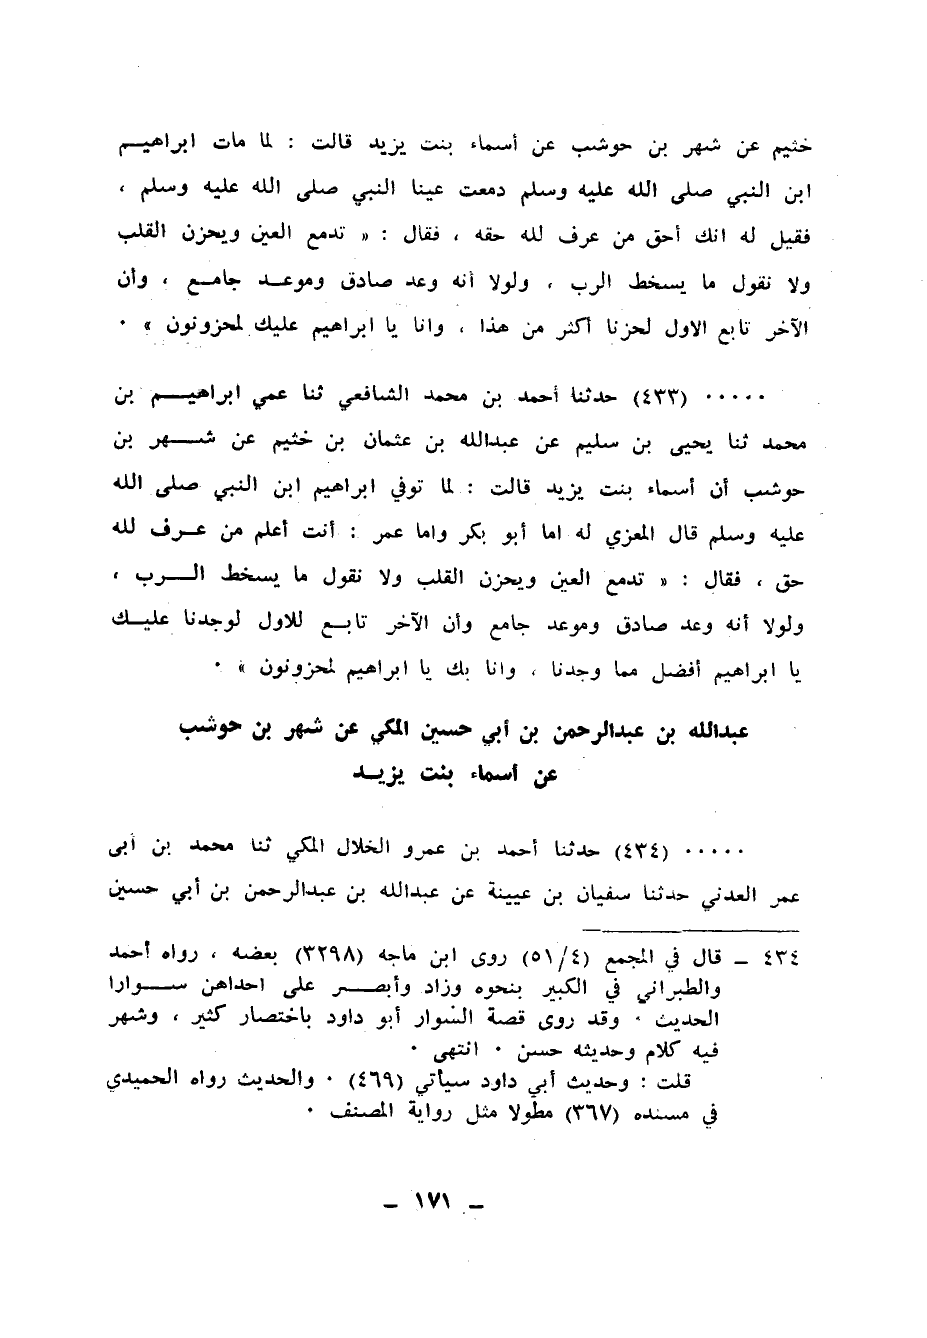 خثيم عن شهر بن حوشب عن أسماء بنت يزيد قالت : لما مات ابراهيم
ابن النبي صلى الله عليه وسلم دمعت عينا النبي صلى الله عليه وسلم ،
فقيل له انك أحق من عرف لله حقه ، فقال : « تدمع العين ويحزن القلب
ولا نقول ما يسخط الرب ، ولولا أنه وعد صادق وموعد جامع ، وأن
الآخر تابع الاول لحزنا أكثر من هذا ، وانا يا ابراهيم عليك لمحزونون » ٠
٠٠٠٠٠ (٤٣٣) حدثنا أحمد بن محمد الشافعي ثنا عمي ابراهيم بن
محمد ثنا يحيى بن سليم عن عبدالله بن عثمان بن خثيم عن شهر بن
حوشب أن أسماء بنت يزيد قالت : لما توفي ابراهيم ابن النبي صلى الله
عليه وسلم قال المعزي له اما أبو بكر واما عمر : أنت أعلم من عرف لله
حق ، فقال : « تدمع العين ويحزن القلب ولا نقول ما يسخط الرب ،
ولولا أنه وعد صادق وموعد جامع وأن الآخر تابع للاول لوجدنا عليك
يا ابراهيم أفضل مما وجدنا ، وانا بك يا ابراهيم لمحزونون » ٠
عبدالله بن عبدالرحمن بن أبي حسين المكي عن شهر بن حوشب
عن أسماء بنت يزيد
٠٠٠٠٠ (٤٣٤) حدثنا أحمد بن عمرو الخلال المكي ثنا محمد بن أبى
عمر العدني حدثنا سفيان بن عيينة عن عبدالله بن عبدالرحمن بن أبي حسين
٤٣٤ ـ قال في المجمع (٥١/٤) روى ابن ماجه (٣٢٩٨) بعضه ، رواه أحمد
والطبراني في الكبير بنحوه وزاد وأبصر على احداهن سوارا
الحديث ٠ وقد روى قصة السوار أبو داود باختصار كثير ، وشهر
فيه كلام وحديثه حسن ٠ انتهى ٠
قلت : وحديث أبي داود سيأتي (٤٦٩) ٠ والحديث رواه الحميدي
في مسنده (٣٦٧) مطولا مثل رواية المصنف ٠
ـ ١٧١ ـ